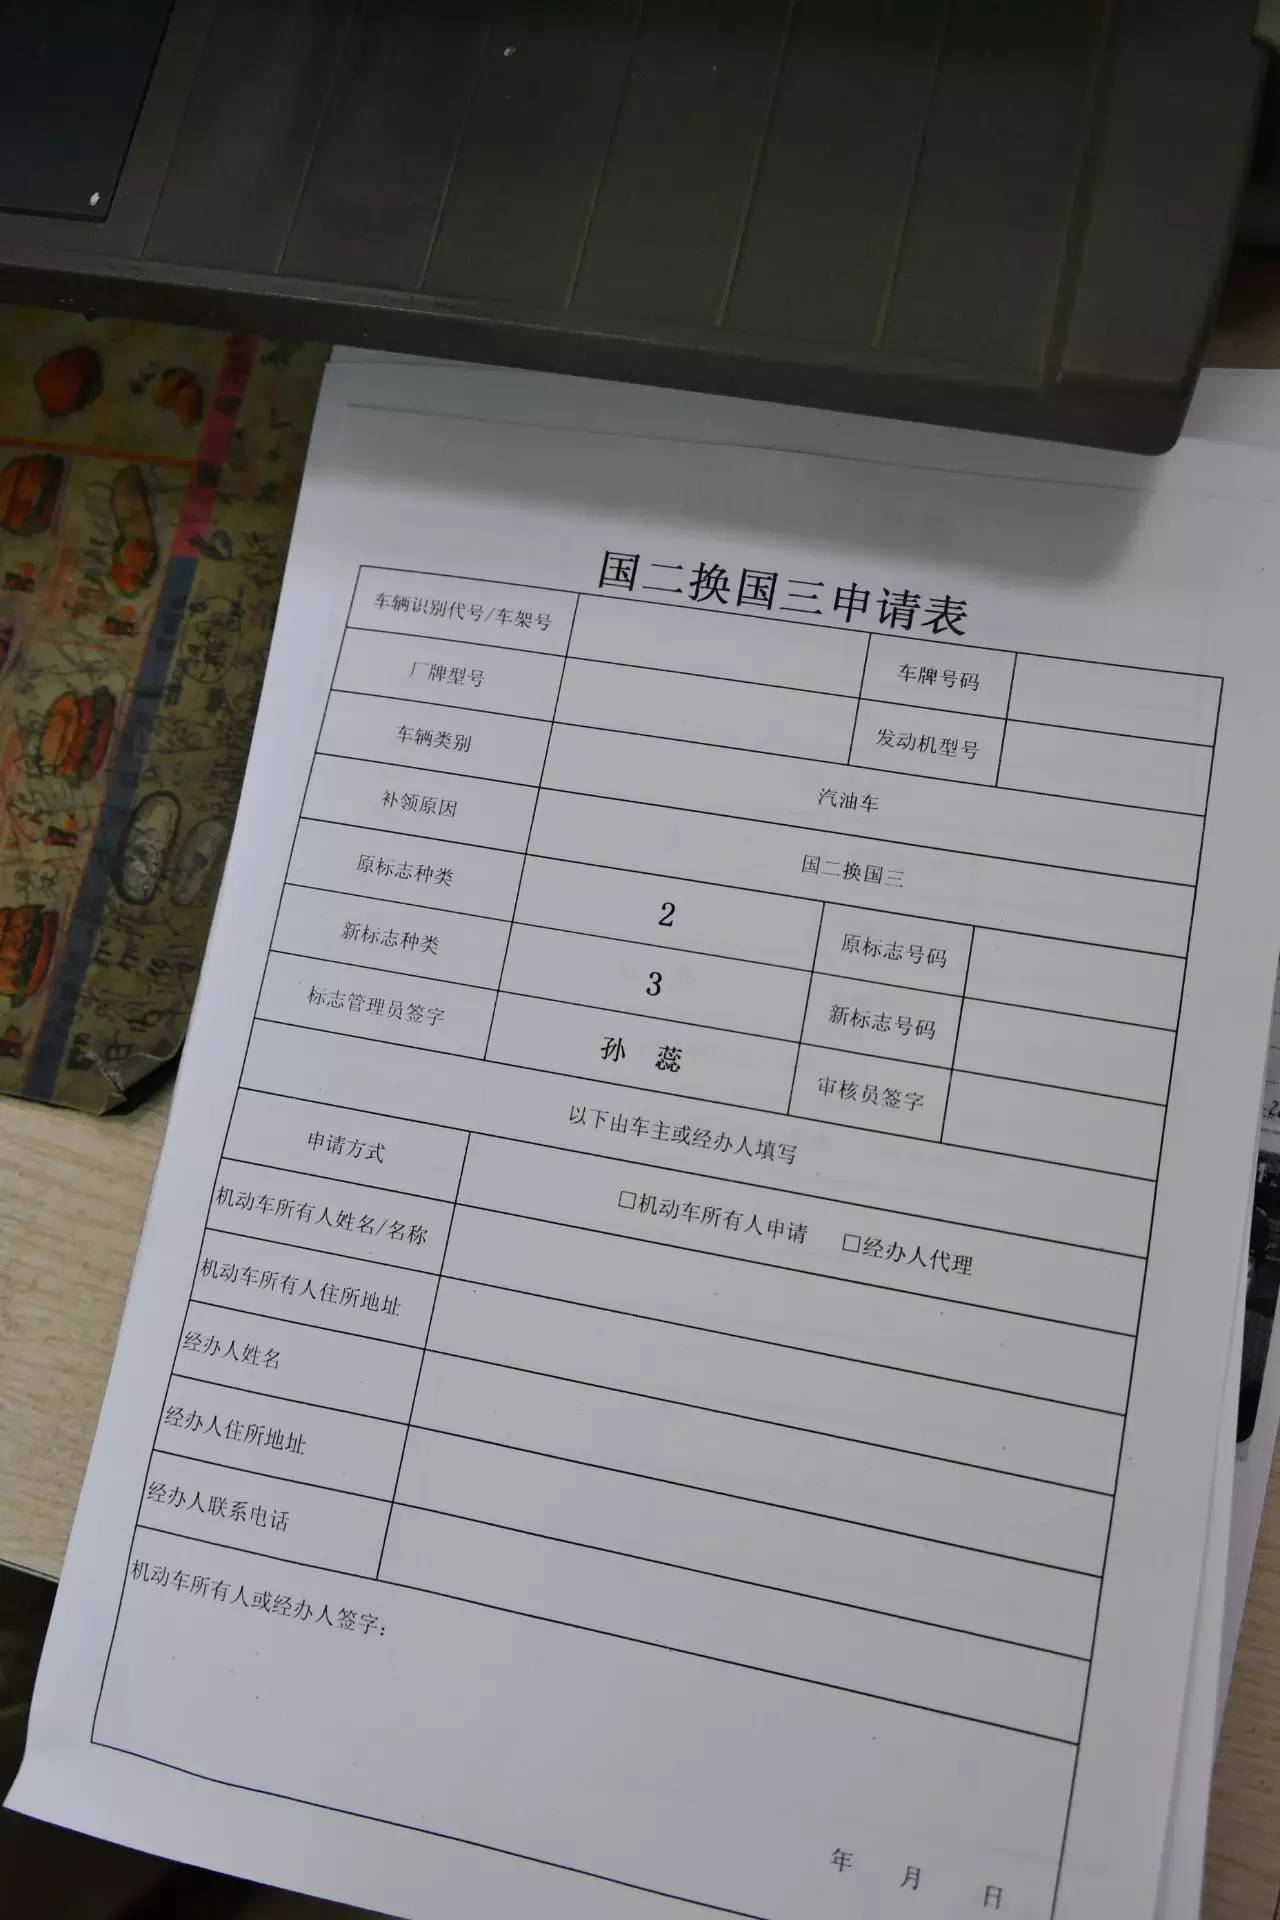 国二换国三申请表
车辆识别代号/车架号 车牌号码
厂牌型号 发动机型号
车辆类别 汽油车
补领原因 国二换国三
原标志种类 2 原标志号码
新标志种类 3 新标志号码
标志管理员签字 孙 蕊 审核员签字
以下由车主或经办人填写
申请方式 □机动车所有人申请 □经办人代理
机动车所有人姓名/名称
机动车所有人住所地址
经办人姓名
经办人住所地址
经办人联系电话
机动车所有人或经办人签字：
年 月 日